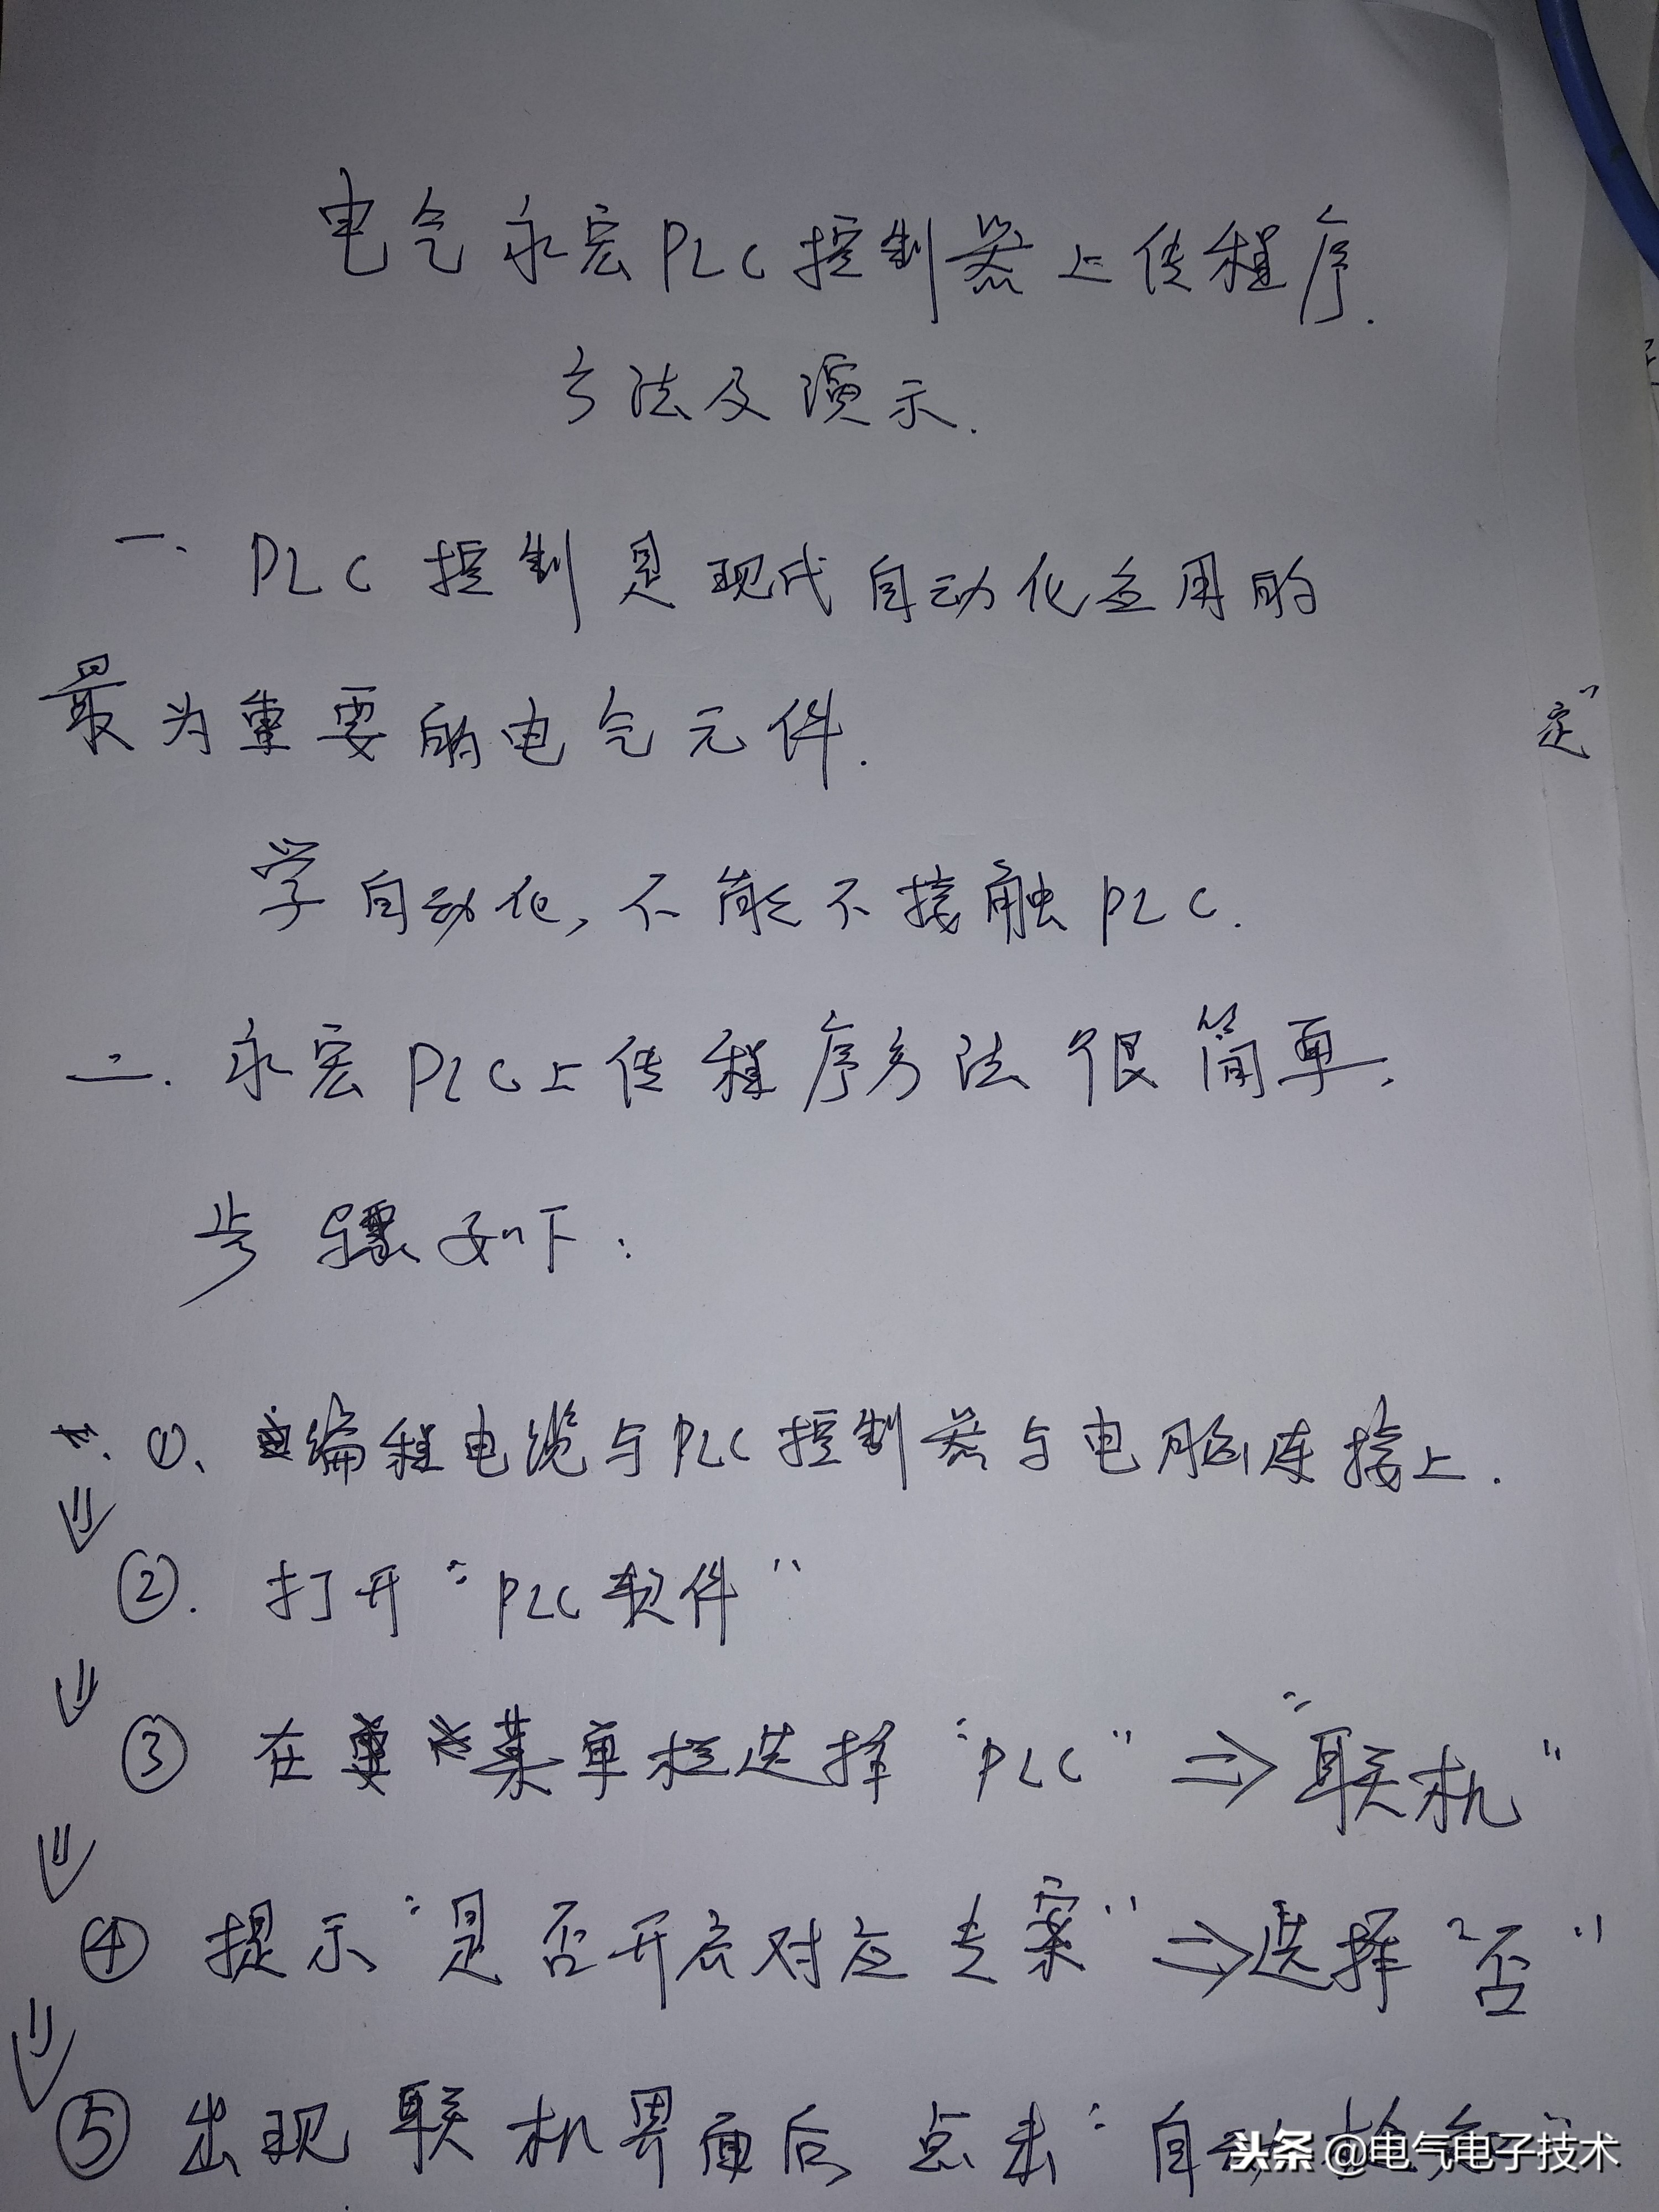 电气永宏PLC控制器上传程序.
方法及演示.
一、PLC控制是现代自动化应用的
最为重要的电气元件.
定"
学自动化,不能不接触PLC.
二.永宏PLC上传程序方法很简单,
步骤如下:
①、编程电缆与PLC控制器与电脑连接上.
⇓
②. 打开"PLC软件"
⇓
③ 在菜单栏选择"PLC"⇒"联机"
⇓
④ 提示"是否开启对应专案"⇒选择"否"
⇓
⑤ 出现联机界面后点击"自动
头条 @电气电子技术